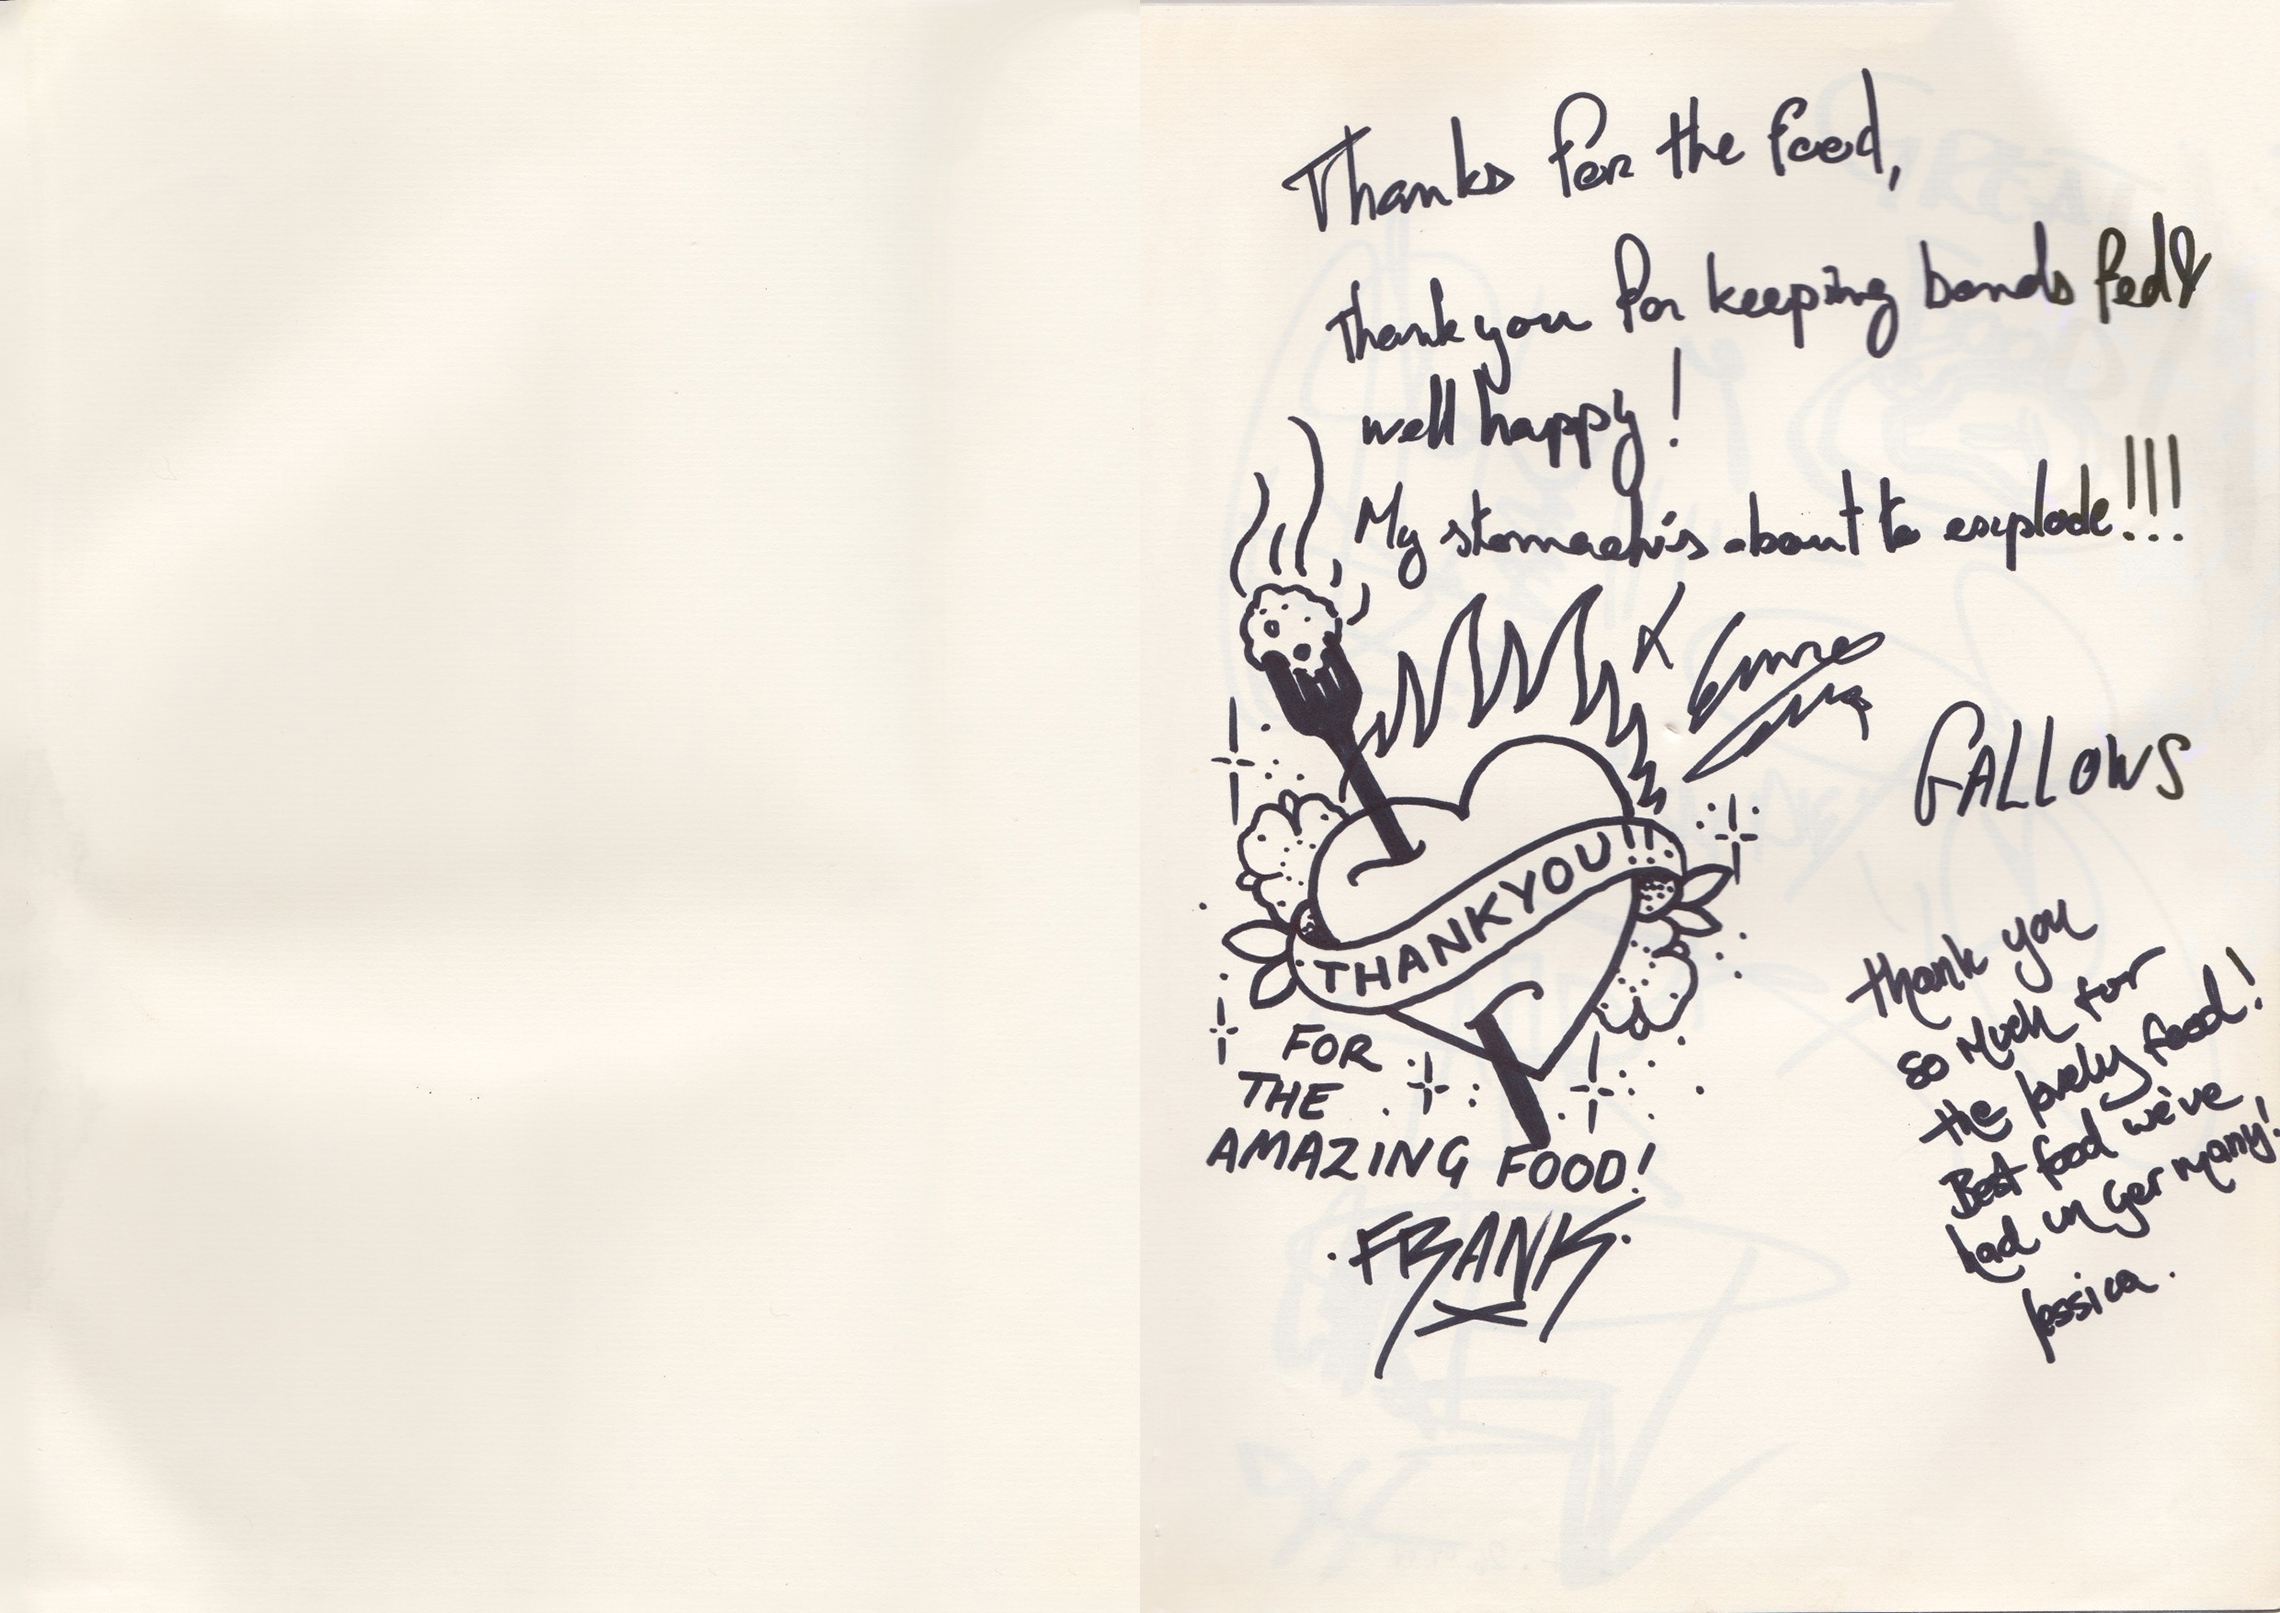 Thanks for the food,
thank you for keeping bands fed &
well happy!
My stomach is about to explode!!!
X
GALLOWS
THANKYOU!!
FOR
THE
AMAZING FOOD!
·FRANK·
X
thank you
so much for
the lovely food!
Best food we've
had in Germany!
Jessica.